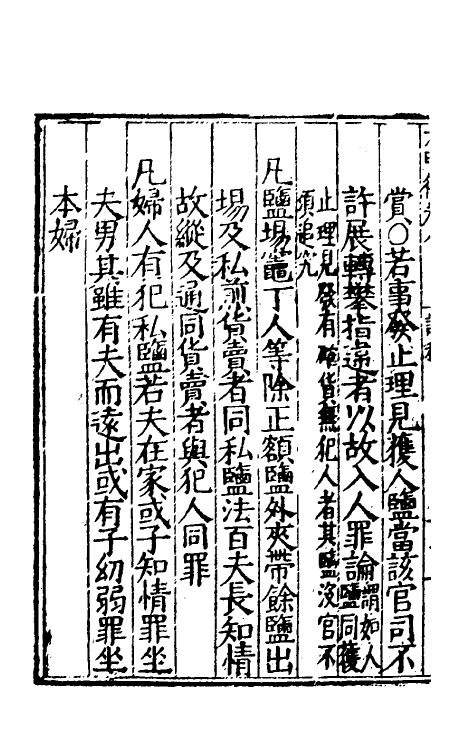 賞〇若事發止理見獲人鹽當該官司不
許展轉攀指違者以故入人罪論謂如人鹽同獲
止理見發有確貨無犯人者其鹽沒官不須追究
凡鹽場竈丁人等除正額鹽外夾帶餘鹽出
場及私煎貨賣者同私鹽法百夫長知情
故縱及通同貨賣者與犯人同罪
凡婦人有犯私鹽若夫在家或子知情罪坐
夫男其雖有夫而遠出或有子幼弱罪坐
本婦